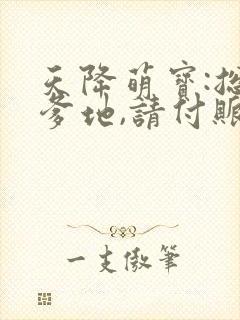 天降萌寶:總
爹地,請付賬
一支傲筆